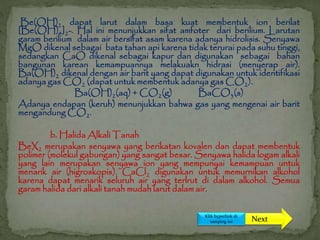 Be(OH)₂ dapat larut dalam basa kuat membentuk ion berilat
[Be(OH)₄]₂-. Hal ini menunjukkan sifat amfoter dari berilium. Larutan
garam berilium dalam air bersifat asam karena adanya hidrolisis. Senyawa
MgO dikenal sebagai bata tahan api karena tidak terurai pada suhu tinggi,
sedangkan CaO dikenal sebagai kapur dan digunakan sebagai bahan
bangunan karean kemampuannya melakuakn hidrasi (menyerap air).
Ba(OH)₂ dikenal dengan air barit yang dapat digunakan untuk identifikasi
adanya gas CO₂ (dapat untuk membentuk adanya gas CO₂).
Ba(OH)₂(aq) + CO₂(g) BaCO₃(s)
Adanya endapan (keruh) menunjukkan bahwa gas yang mengenai air barit
mengandung CO₂.
b. Halida Alkali Tanah
BeX₂ merupakan senyawa yang berikatan kovalen dan dapat membentuk
polimer (molekul gabungan) yang sangat besar. Senyawa halida logam alkali
yang lain merupakan senyawa ion yang mempunyai kemampuan untuk
menarik air (higroskopis). CaCl₂ digunakan untuk memurnikan alkohol
karena dapat menarik seluruh air yang terlrut di dalam alkohol. Semua
garam halida dari alkali tanah mudah larut dalam air.
Klik hyperlink di
samping ini
Next